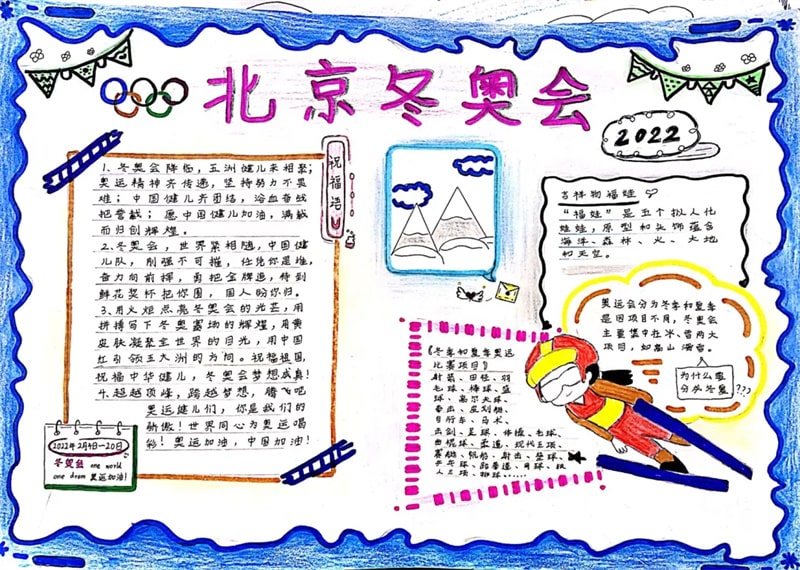 北京冬奥会
2022
祝福语
1、冬奥会降临,五洲健儿来相聚;
奥运精神齐传递,坚持努力不畏
难;中国健儿齐团结,浴血奋战
把誉载;愿中国健儿加油,满载
而归创辉煌。
2、冬奥会,世界紧相随,中国健
儿队,刚强不可摧,任凭你是谁,
奋力向前挥,勇把金牌追,待到
鲜花奖杯把你围,国人盼你归。
3、用火炬点亮冬奥会的光芒,用
拼搏写下冬奥赛场的辉煌,用黄
皮肤凝聚全世界的目光,用中国
红引领五大洲的方向。祝福祖国,
祝福中华健儿,冬奥会梦想成真!
4、超越顶峰,跨越梦想,腾飞吧
奥运健儿们,你是我们的
骄傲!世界同心为奥运喝
彩!奥运加油,中国加油!
2022年2月4日—20日
冬奥会 one world
one dream 奥运加油!
吉祥物福娃
“福娃”是五个拟人化
娃娃,原型和头饰蕴含
海洋、森林、火、大地
和天空。
奥运会分为冬季和夏季
是因项目不同,冬奥会
主要集中在冰、雪两大
项目,如高山滑雪。
为什么要
分为冬夏
???
《冬季和夏季奥运
比赛项目》
射箭、田径、羽
毛球、棒球、篮
球、高尔夫球、
拳击、皮划艇、
自行车、马术、
击剑、足球、体操、手球、
曲棍球、柔道、现代五项、
赛艇、帆船、射击、垒球、
乒乓球、跆拳道、网球、铁
人三项、排球……